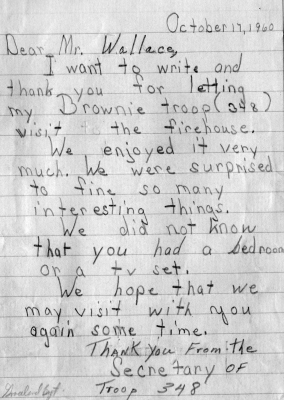 October 17, 1960
Dear Mr. Wallace,
I want to write and
thank you for letting
my Brownie troop (348)
visit the firehouse.
We enjoyed it very
much. We were surprised
to fine so many
interesting things.
We did not know
that you had a bedroom
or a tv set.
We hope that we
may visit with you
again some time.
Thank you From the
Secretary OF
Troop 348